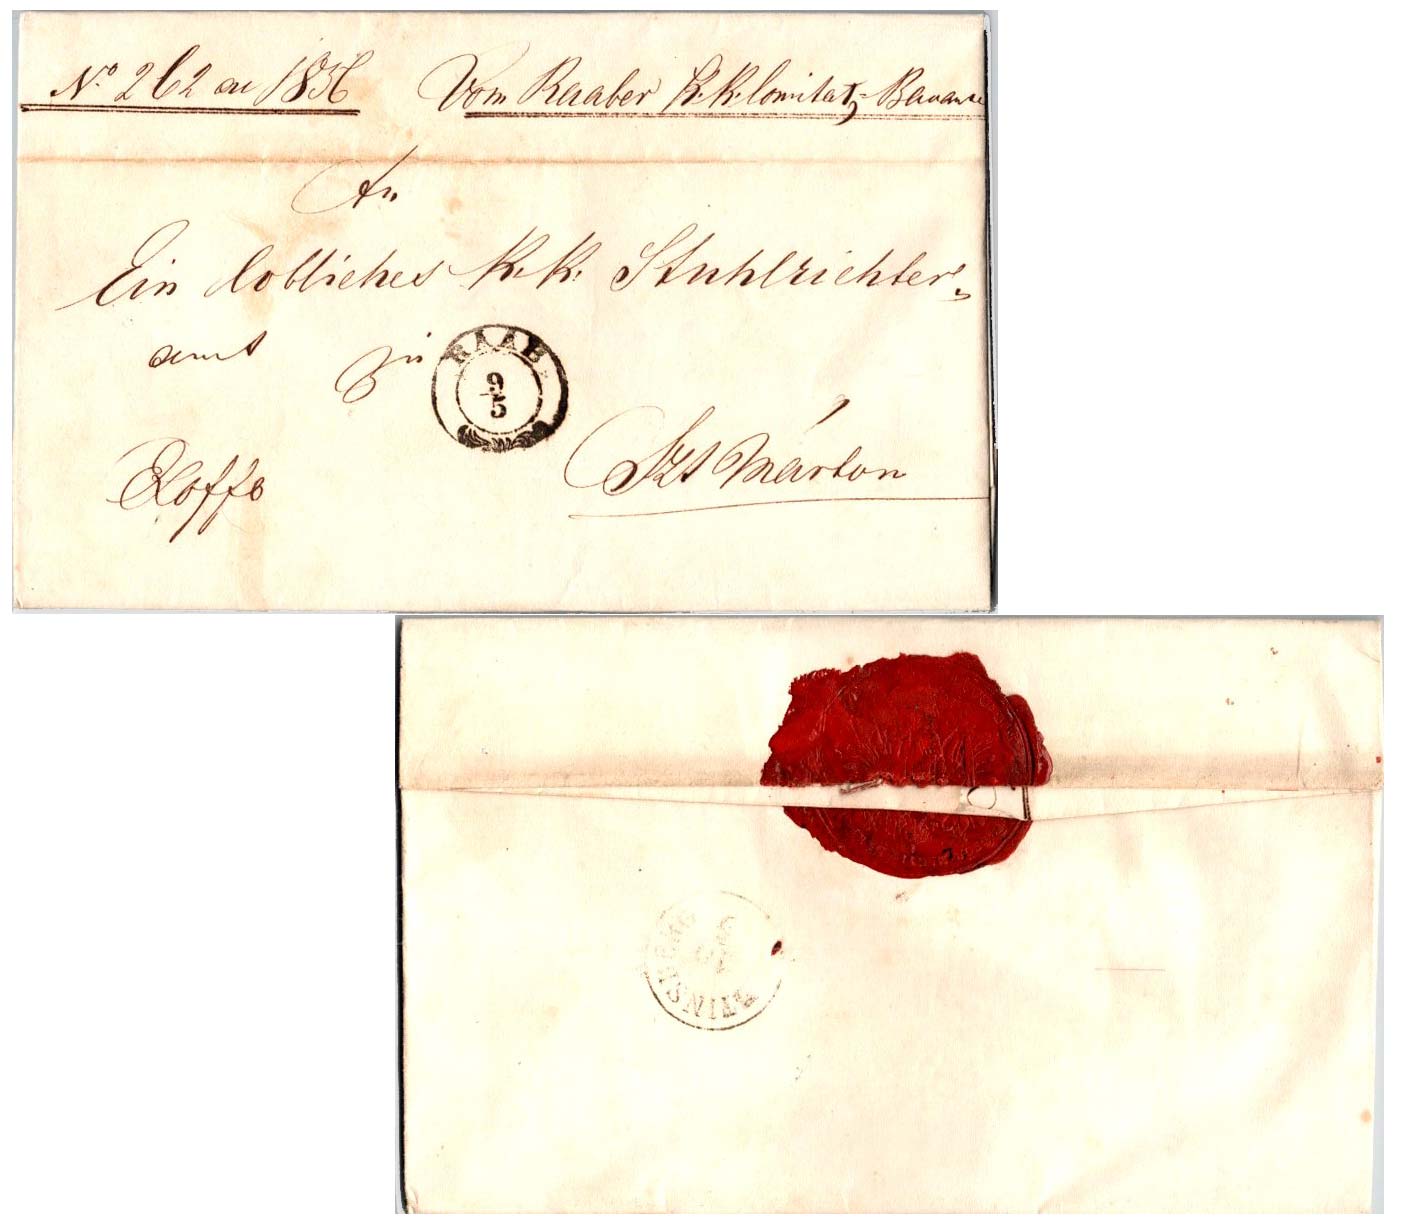 No 262 au 1856 Vom Raaber k.k. Comitats-Bauamte
An
Ein löbliches k.k. Stuhlrichter-
amt zu
RAAB
9/5
Szt Márton
Exoffo
MARTINSBERG